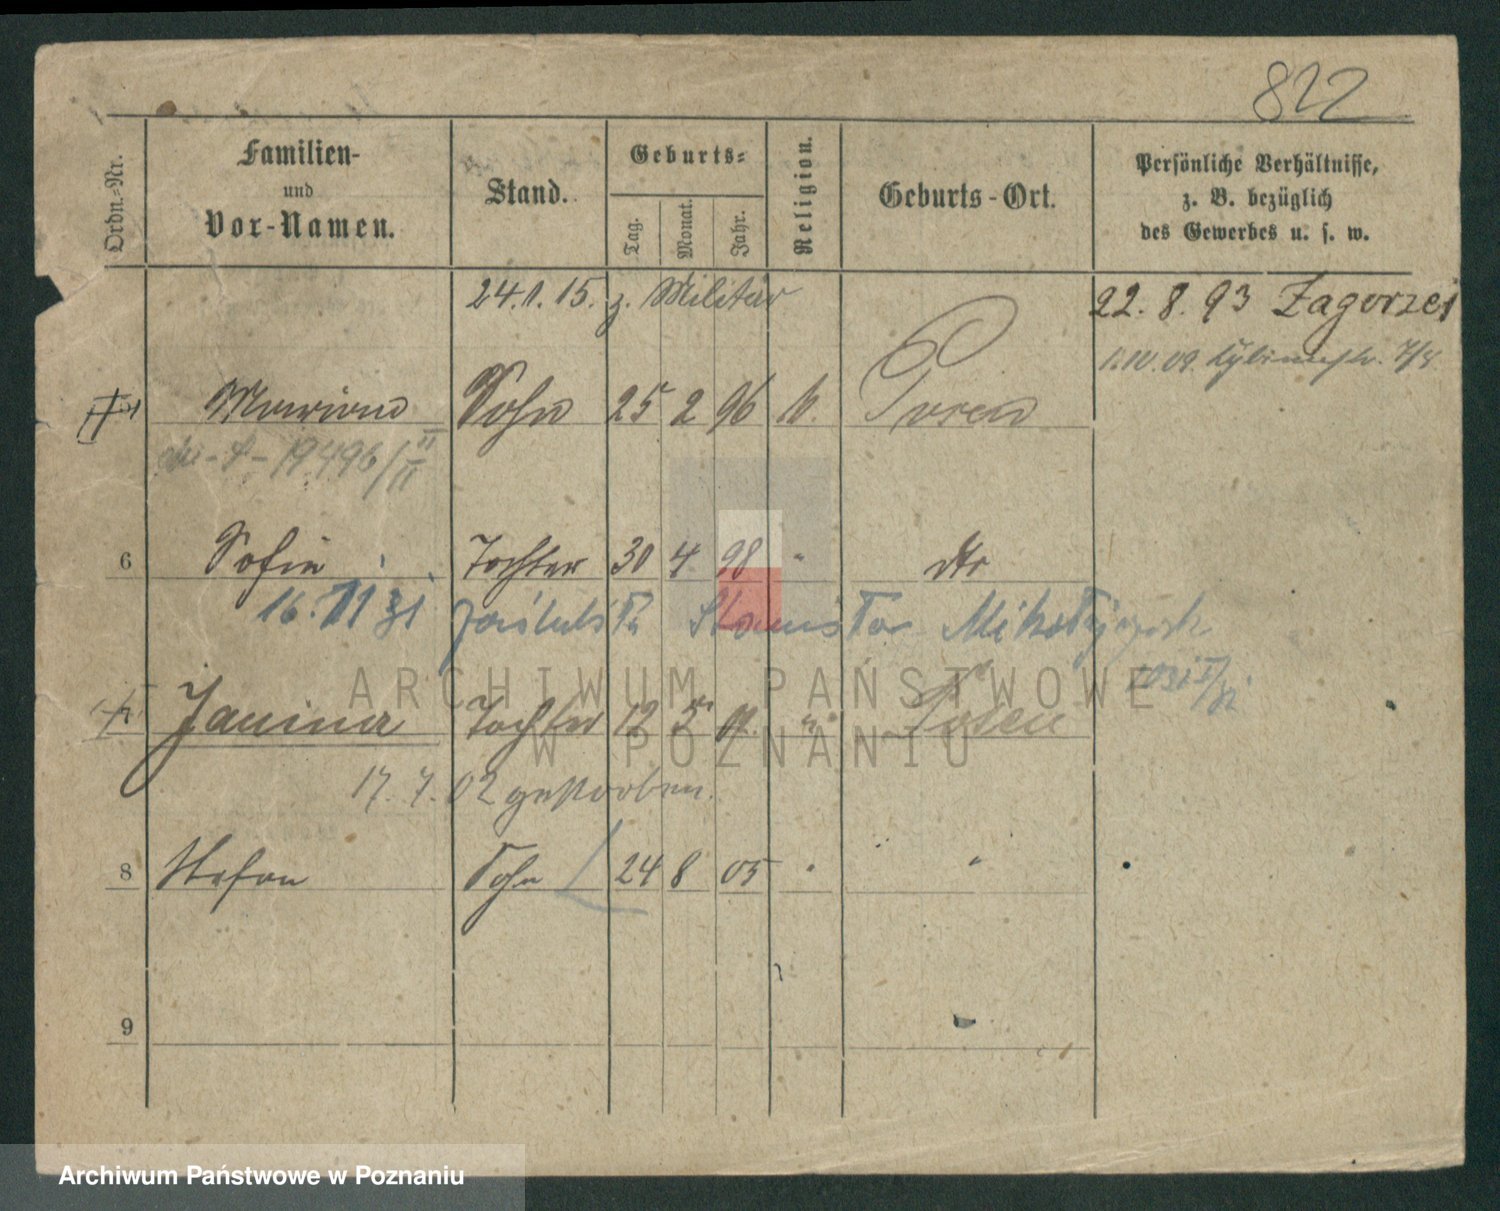 822
Ordn.-Nr.
Familien-
und
Vor-Namen.
Stand.
Geburts-
Tag.
Monat.
Jahr.
Religion.
Geburts-Ort.
Persönliche Verhältnisse,
z. B. bezüglich
des Gewerbes u. s. w.
24.1.15. z. Militär
22. 8. 93 Zagorze
1.10.09.
Marian Sohn 25 2 96 k. Posen
19496/II
6 Sofie Tochter 30 4 98 " dto
16. 31 Stanisław Mikołajczak
Janina Tochter 12 5 " Posen
17. 7. 02 gestorben.
8 Stefan Sohn 24 8 05 " "
9
ARCHIWUM PAŃSTWOWE
W POZNANIU
Archiwum Państwowe w Poznaniu